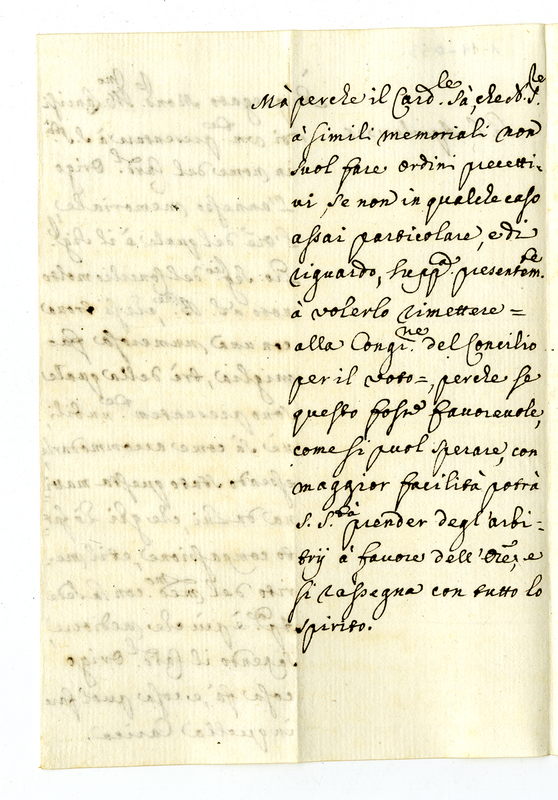 Mà perche il Card.le Sà, che N. S.re
à simili memoriali non
suol fare ordini precetti-
vi, se non in qualche caso
assai particolare, e di
riguardo, supp.a presentem.te
à volerlo rimettere =
alla Congr.ne del Concilio
per il voto =, perche se
questo fosse favorevole,
come si puol sperare, con
maggior facilità potrà
S. S.tà prender degl'arbi-
trij à favore dell'Ore, e
si rassegna con tutto lo
spirito.